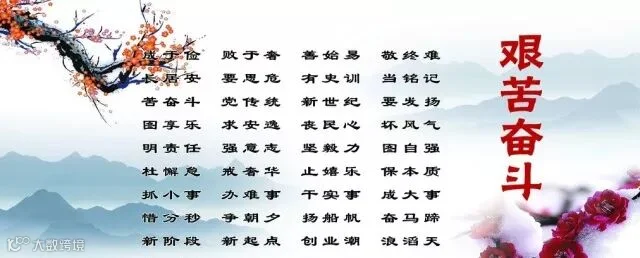 艰苦奋斗
成于俭 败于奢 善始易 敬终难
长居安 要思危 有史训 当铭记
苦奋斗 党传统 新世纪 要发扬
图享乐 求安逸 丧民心 坏风气
明责任 强意志 坚毅力 图自强
杜懈怠 戒奢华 止嬉乐 保本质
抓小事 办难事 干实事 成大事
惜分秒 争朝夕 扬船帆 奋马蹄
新阶段 新起点 创业潮 浪滔天
大数跨境